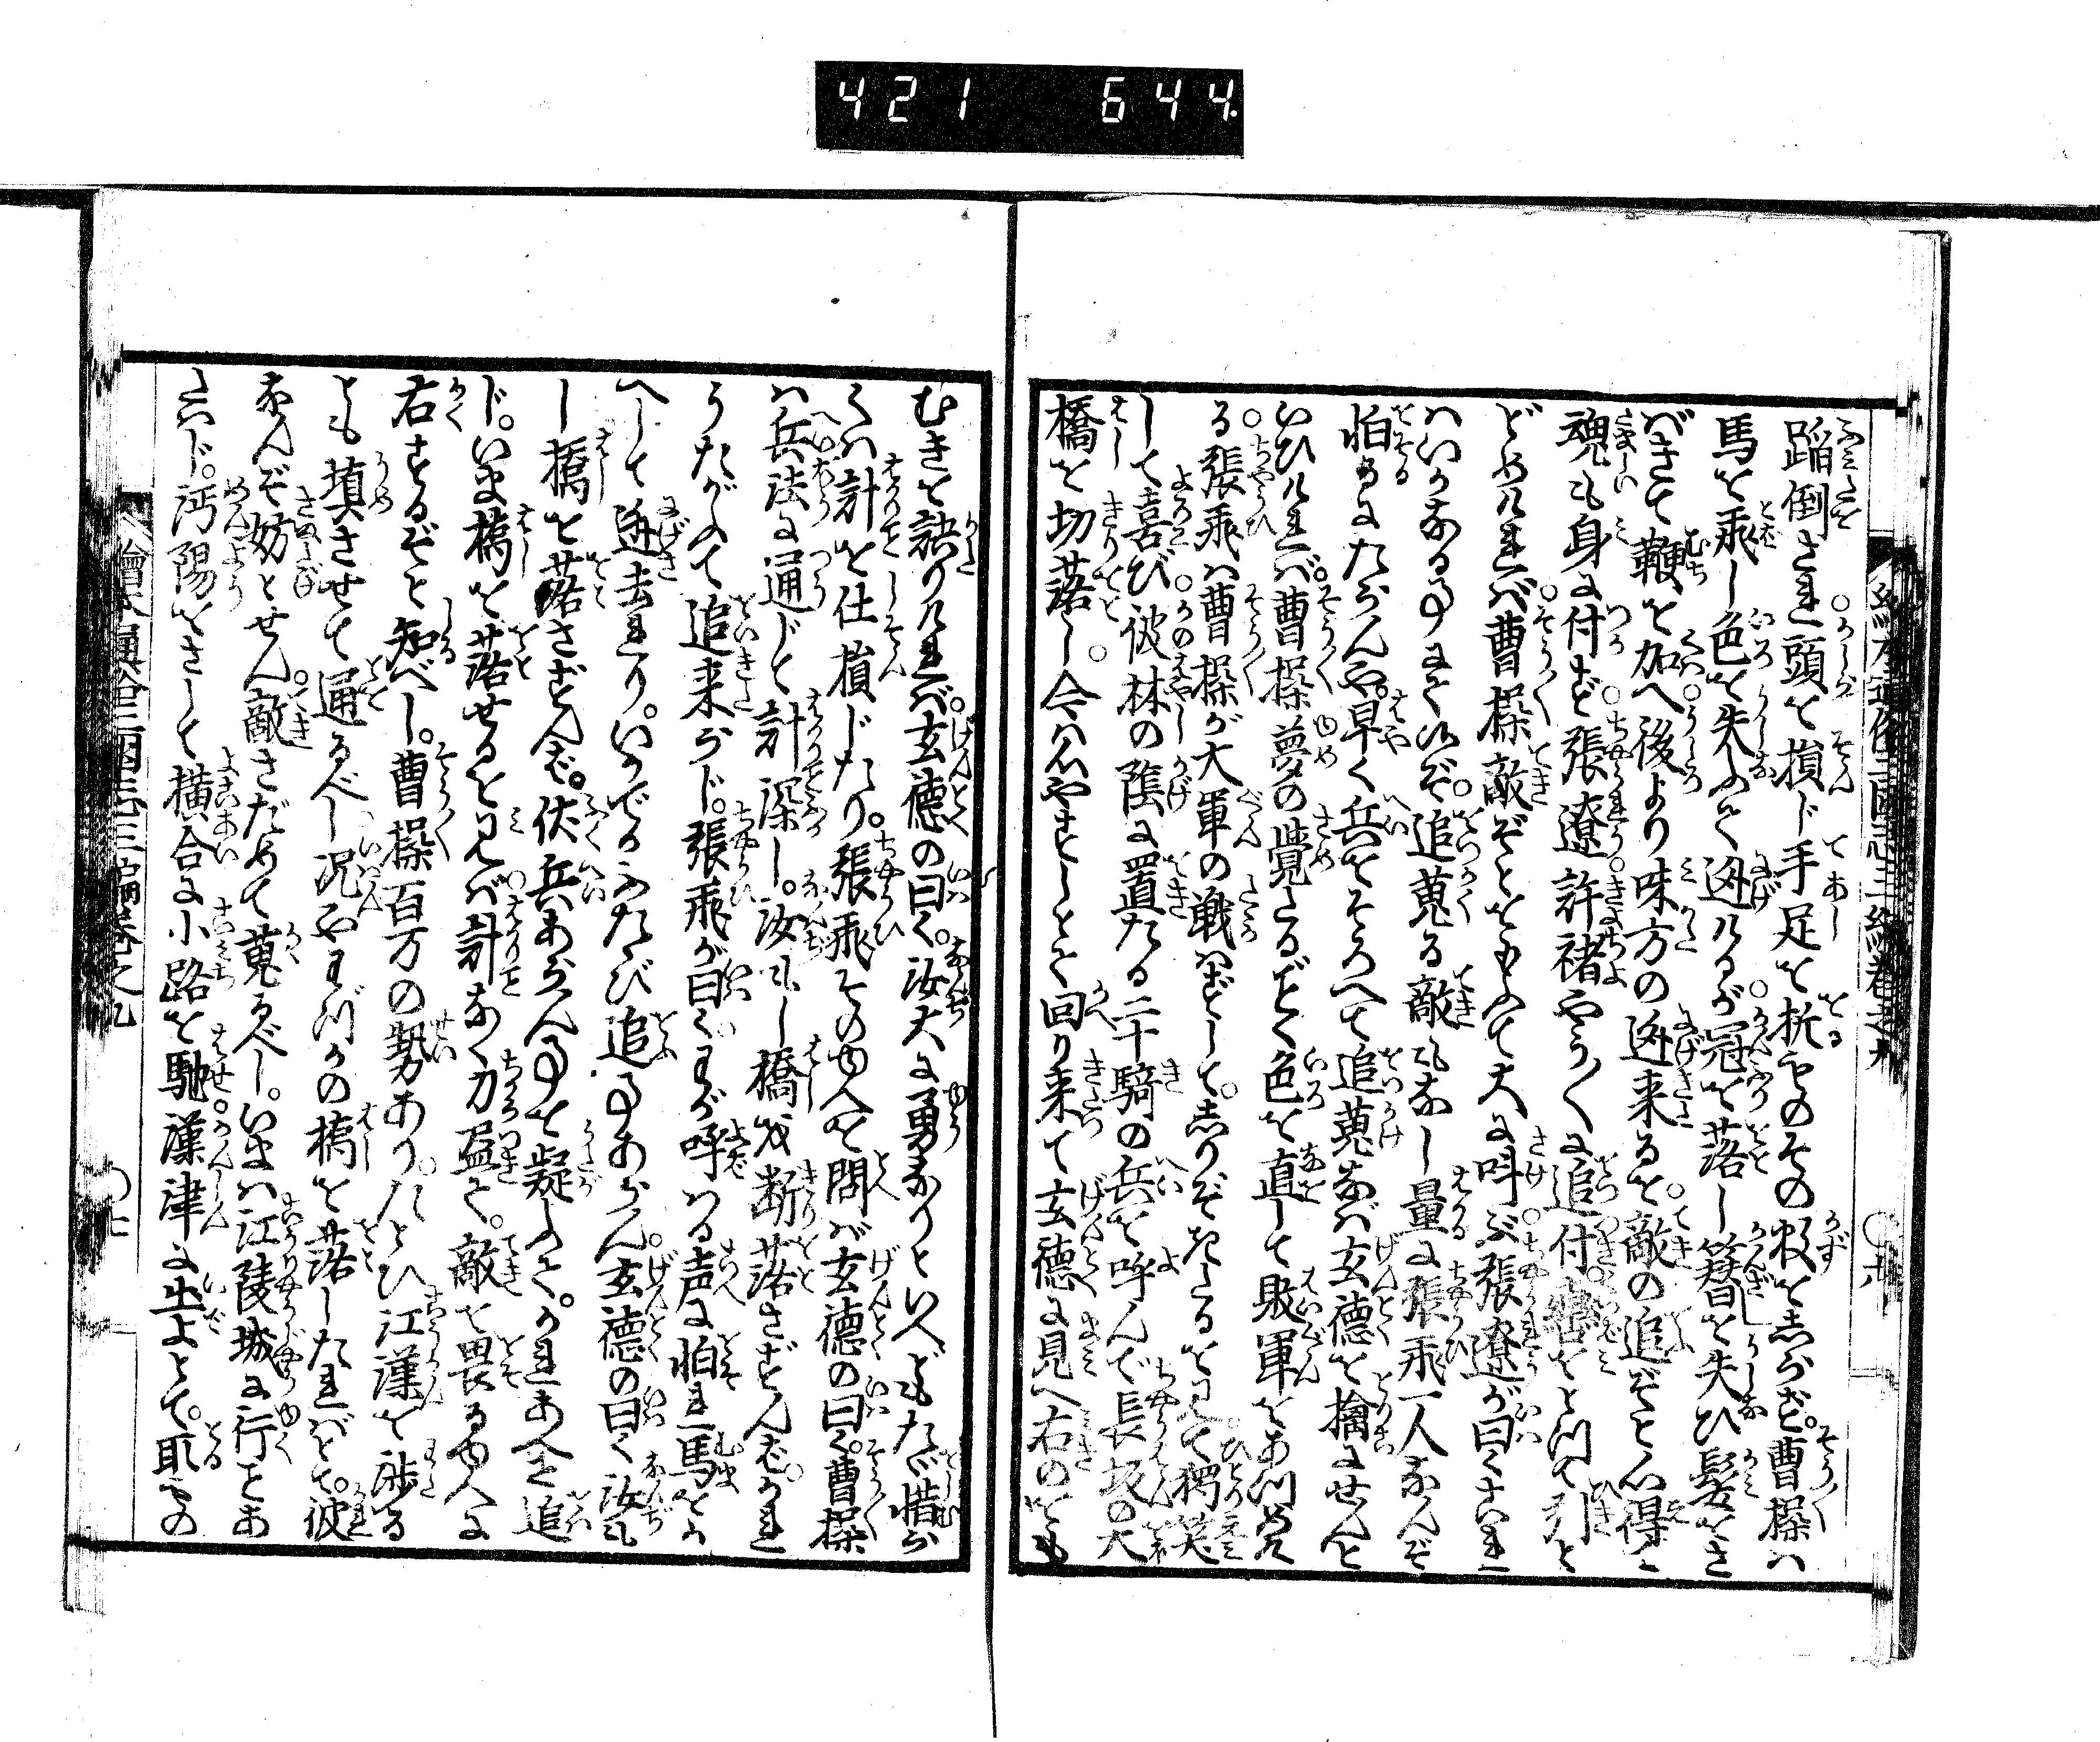 421 644
蹈倒され頭を損じ手足を折ものその数をしらず。曹操は
馬を乘し色を失ふて迯けるが冠を落し簪を失ひ髪をさ
ばきて鞭を加へ後より味方の迯来るを敵の追ぞと心得て
魂も身に付ず張遼許褚やう〱に追付轡をとつて引と
どめければ曹操敵ぞとをもふて大に叫ぶ張遼が曰くこれ
はいかなる事にて候ぞ。追蒐る敵もなし量に張飛一人なんぞ
怕るにたらんや。早く兵をそろへて追蒐なば玄徳を擒にせんと
いひければ。曹操夢の覺たるごとく色を直して敗軍をあつめける
張飛は曹操が大軍の戦はずして。しりぞきたるをみて獨笑
して喜び彼林の陰に置たる二十騎の兵を呼んで長坂の大
橋を切落し今は心やすしとて回り来て玄徳に見へ右のをも
むきを訣りければ。玄徳の曰く。汝大に勇ありといへどもたゞ惜ら
くは計を仕損じたり。張飛そのゆへを問ば玄徳の曰く。曹操
は兵法に通じて計深し。汝もし橋を断落さずんば。かれ
うたがふて追来らじ。張飛が曰く。わが呼はる声に怕れ馬をか
へして迯去れり。いかでかふたゝび追事あらん。玄徳の曰く汝も
し橋を落さずんば。伏兵あらん事を疑ふて。かれあへて追
じ。いま橋を落せるをみば計なく力盡て。敵を畏るゆへに
右するぞと知べし。曹操百万の勢あり。たとひ江漢を渉る
とも填させて通るべし況やわづかの橋を落したればとて。彼
なんぞ妨とせん。敵さだめて蒐べし。いまは江陵城に行とあ
たはじ。沔陽をさして横合に小路を馳漢津に出よとて。取もの